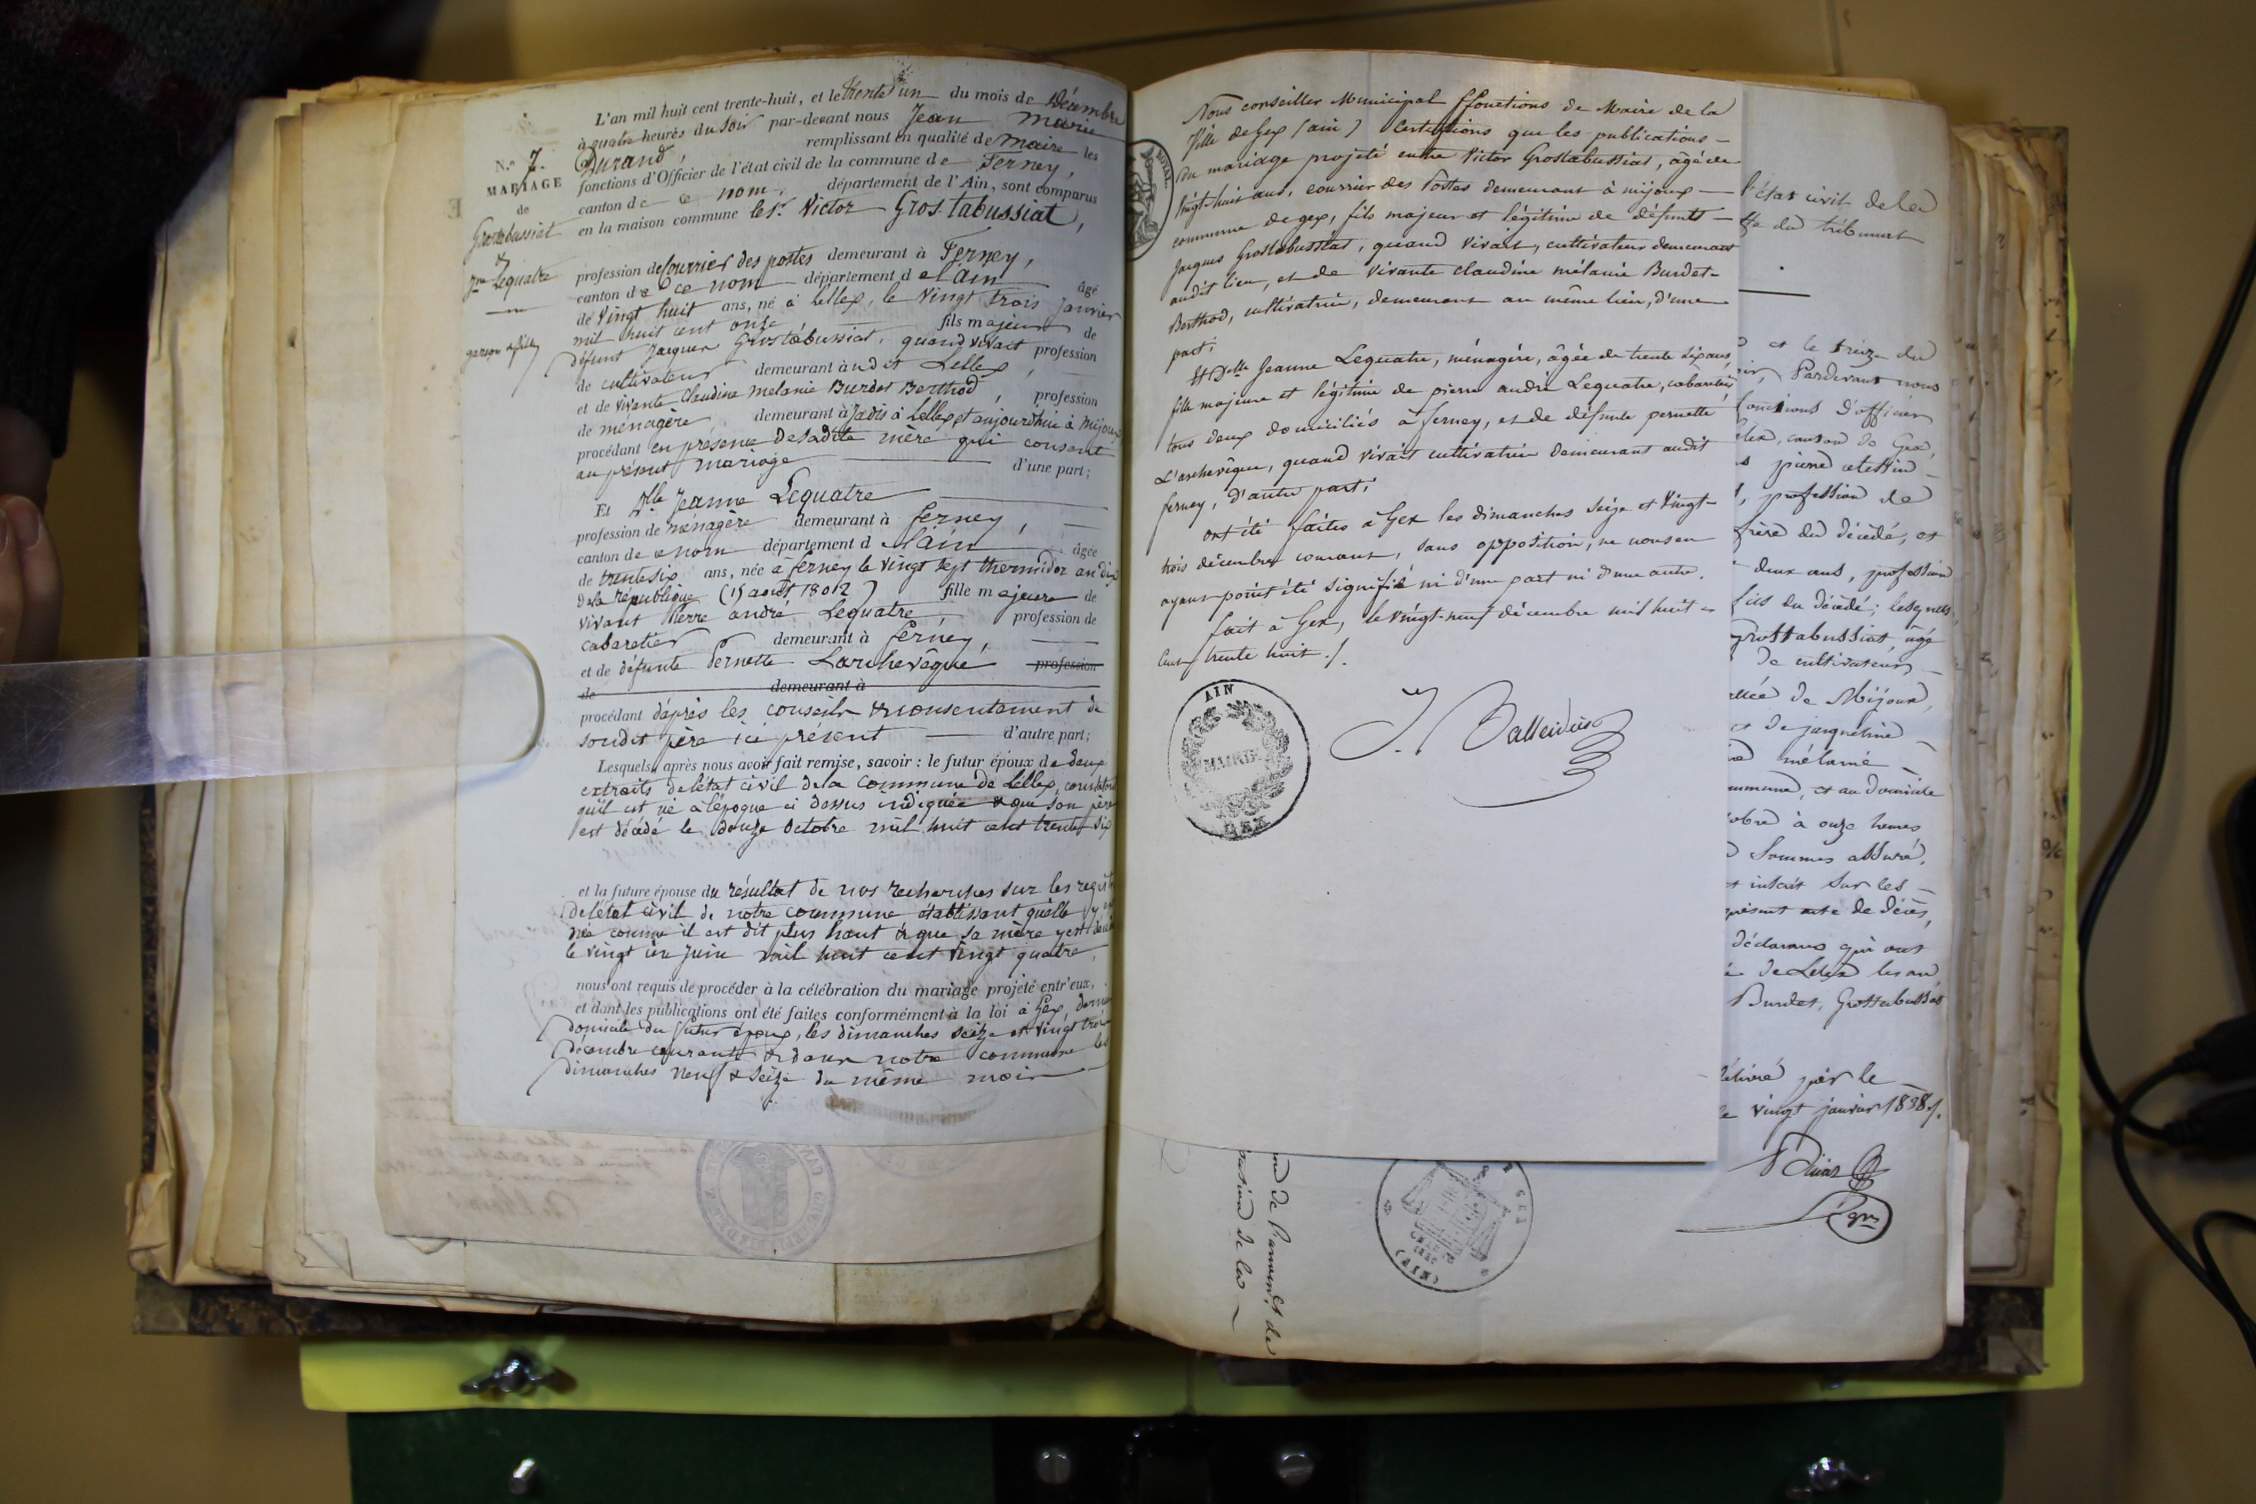 L'an mil huit cent trente-huit, et le trente un du mois de Décembre
à quatre heures du soir par-devant nous Jean Marie
Durand, remplissant en qualité de maire les
fonctions d'Officier de l'état civil de la commune de Ferney,
canton de ce nom, département de l'Ain, sont comparus
en la maison commune le sr. Victor Grostabussiat,
N.° 7.
MARIAGE
de
Grostabussiat
&
Jne Lequatre
garçon & fille
profession de Courrier des postes demeurant à Ferney,
canton de ce nom département de l'ain âgé
de vingt huit ans, né à Lellex, le vingt trois Janvier
mil huit cent onze fils majeur de
défunt Jacques Grostabussiat, quand vivait profession
de cultivateur demeurant à udit Lellex,
et de vivante Claudine Melanie Burdet Berthod, profession
de ménagère demeurant à Jadis à Lellex et aujourdhui à Mijoux
procédant en présence de sadite mère qui consent
au présent mariage d'une part;
Et Dlle Jeanne Lequatre
profession de ménagère demeurant à ferney,
canton de ce nom département de l'ain âgée
de trente six ans, née à ferney le vingt sept thermidor an dix
de la république (15 août 1802) fille majeure de
vivant Pierre andré Lequatre profession de
cabaretier demeurant à ferney,
et de défunte Pernette Larchevêque profession
de demeurant à
procédant d'après les conseils & consentement de
sondit père ici présent d'autre part;
Lesquels, après nous avoir fait remise, savoir : le futur époux de deux
extraits de l'état civil de la commune de Lellex, constatant
qu'il est né à l'époque ci dessus indiquée & que son père
est décédé le douze Octobre mil huit cent trente six
et la future épouse du résultat de nos recherches sur les registres
de l'état civil de notre commune établissant qu'elle y est
née comme il est dit plus haut & que sa mère y est décédée
le vingt un juin mil huit cent vingt quatre,
nous ont requis de procéder à la célébration du mariage projeté entr'eux,
et dont les publications ont été faites conformément à la loi à Gex, dernier
domicile du futur époux, les dimanches seize et vingt trois
décembre courant & dans notre commune les
dimanches neuf & seize du même mois
Nous conseiller Municipal ffonctions de Maire de la
Ville de Gex (ain) Certifions que les publications
du mariage projeté entre Victor Grostabussiat, âgé de
vingt huit ans, courrier des Postes demeurant à mijoux
commune de gex, fils majeur et légitime de défunt
Jacques Grostabussiat, quand vivait, cultivateur demeurant
audit lieu, et de vivante claudine mélanie Burdet-
Berthod, cultivatrice, demeurant au même lieu, d'une
part;
Et Delle Jeanne Lequatre, ménagère, âgée de trente six ans,
fille majeure et légitime de pierre andré Lequatre, cabaretier
tous deux domiciliés à ferney, et de défunte pernette
L'archevêque, quand vivait cultivatrice demeurant audit
ferney, d'autre part;
ont été faites à Gex les dimanches seize et vingt-
trois décembre courant, sans opposition, ne nous en
ayant point été signifié ni d'une part ni d'une autre.
fait à Gex, le vingt-neuf décembre mil huit
cent trente huit ./.
AIN
MAIRIE
GEX
ROYAL
l'état civil de la
du tribunal
et le treize du
Pardevant nous
fonctions d'officier
canton de Gex,
pierre
, profession de
frère du décédé, et
deux ans, profession
fils du décédé; lesquels
Grostabussiat, âgé
de cultivateur
de Mijoux,
de jacqueline
mélanie
commune, et au domicile
à onze heures
sommes assuré,
et inscrit sur les
présent acte de décès,
déclarans qui ont
de Lelex les an
Burdet, Grostabussiat
délivré par le
vingt janvier 1838 /.
GEX
(AIN)